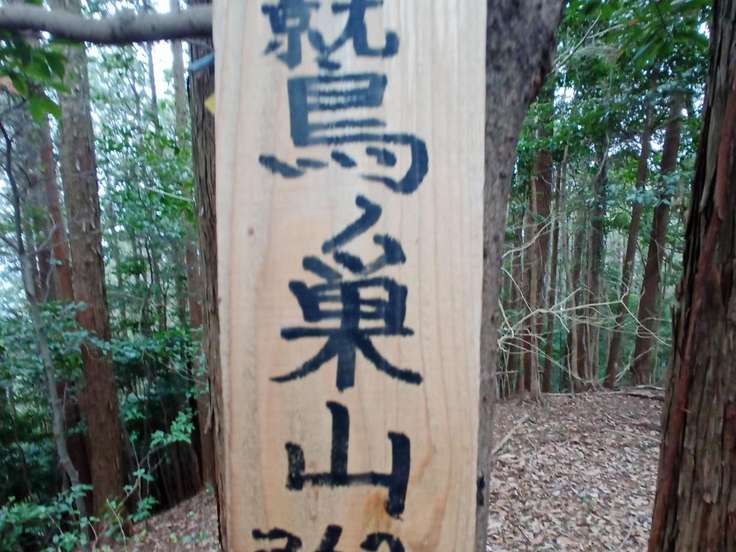 鷲ノ巣山